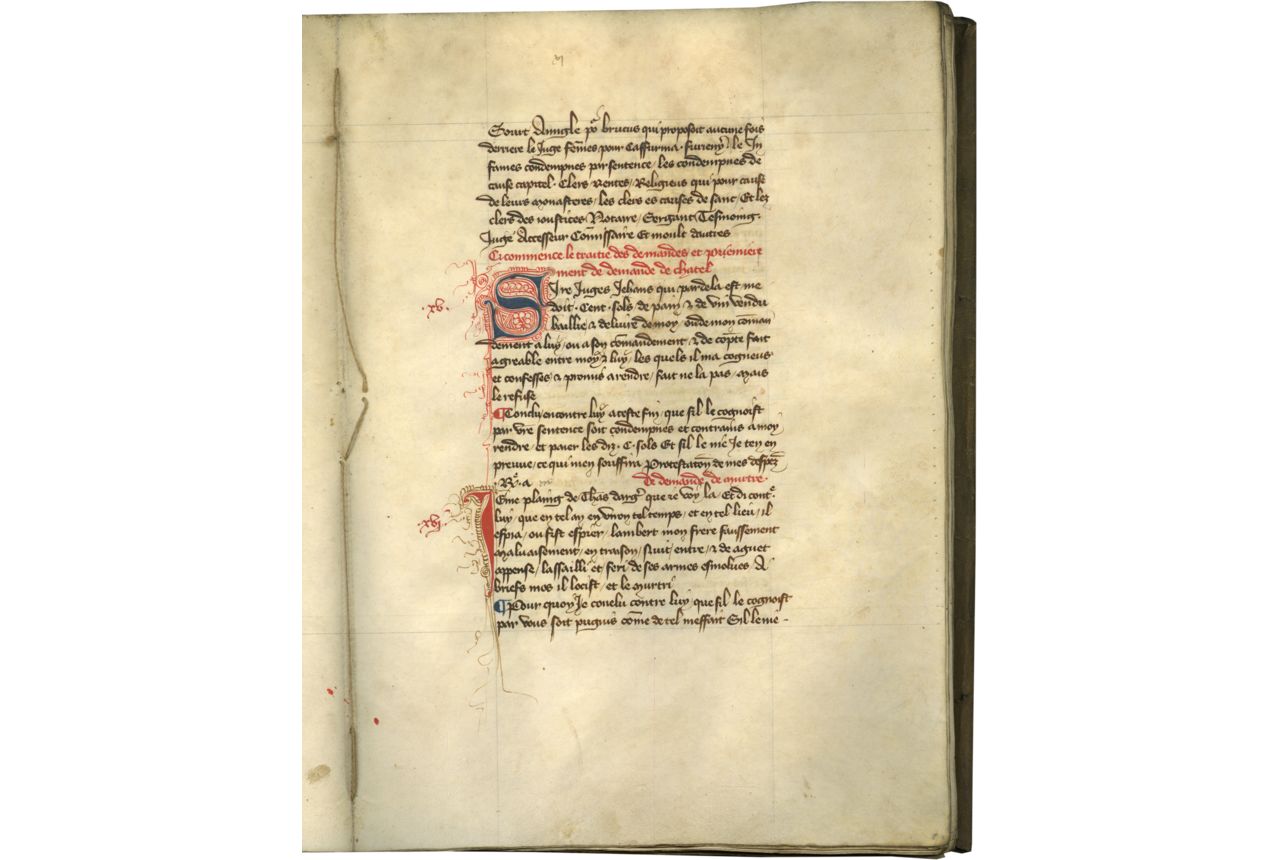 Sourt Avugle po^r brucus qui proposoit aucune fois
derriere le Juge fem̄es pour Caffurnia le In
fames condempnes par sentence / les condempnes de
cause capitel · Clers Rentes / Religieus qui pour cause
de leurs monasteres / les clers es causes de sanc / Et lez
clers des ioustices / Notaire / Sergant / Tesmoing ·
Juge Accesseur Com̄issaire Et moult dautres
Ci commence le traitie des demandes et premiere
ment de demande de chatel
Sire Juges Jehans qui par dela est me
·xv·
doit · Cent · sols de pain / & de vin vendu
baillie & delivre de moy / ou de mon com̄an
dement a luy / ou a son com̄andement / & de cōpte fait
agreable entre moy & luy / les quels il ma cogneus
et confesses & promis a rendre / fait ne la pas / mais
le refuse
¶ Conclu encontre luy a ceste fin / que sil le cognoist
par vr̄e sentence soit condempnes et contrains a moy
rendre / et paier les diz · C · sols Et sil le nie Je ten en
preuve / ce qui men souffira Protestatōn de mes despēz
R^e · a
De demande de murtre ·
Je me plaing de Thās darg̛ que ie voy la Et di cont^e
·xvj·
luy / que en tel an envirōn tel temps / et en tel lieu / il
espia / ou fist espier / lambert mon frere faussement
malvaisement / en traison / & de aguet
appense / lassailli et feri de ses armes esmolues A
briefs mos il locist / et le murtri
¶ Pour quoy Je conclu contre luy / que sil le cognoist
par vous soit pugnis com̄e de tel meffait Sil le nie ·